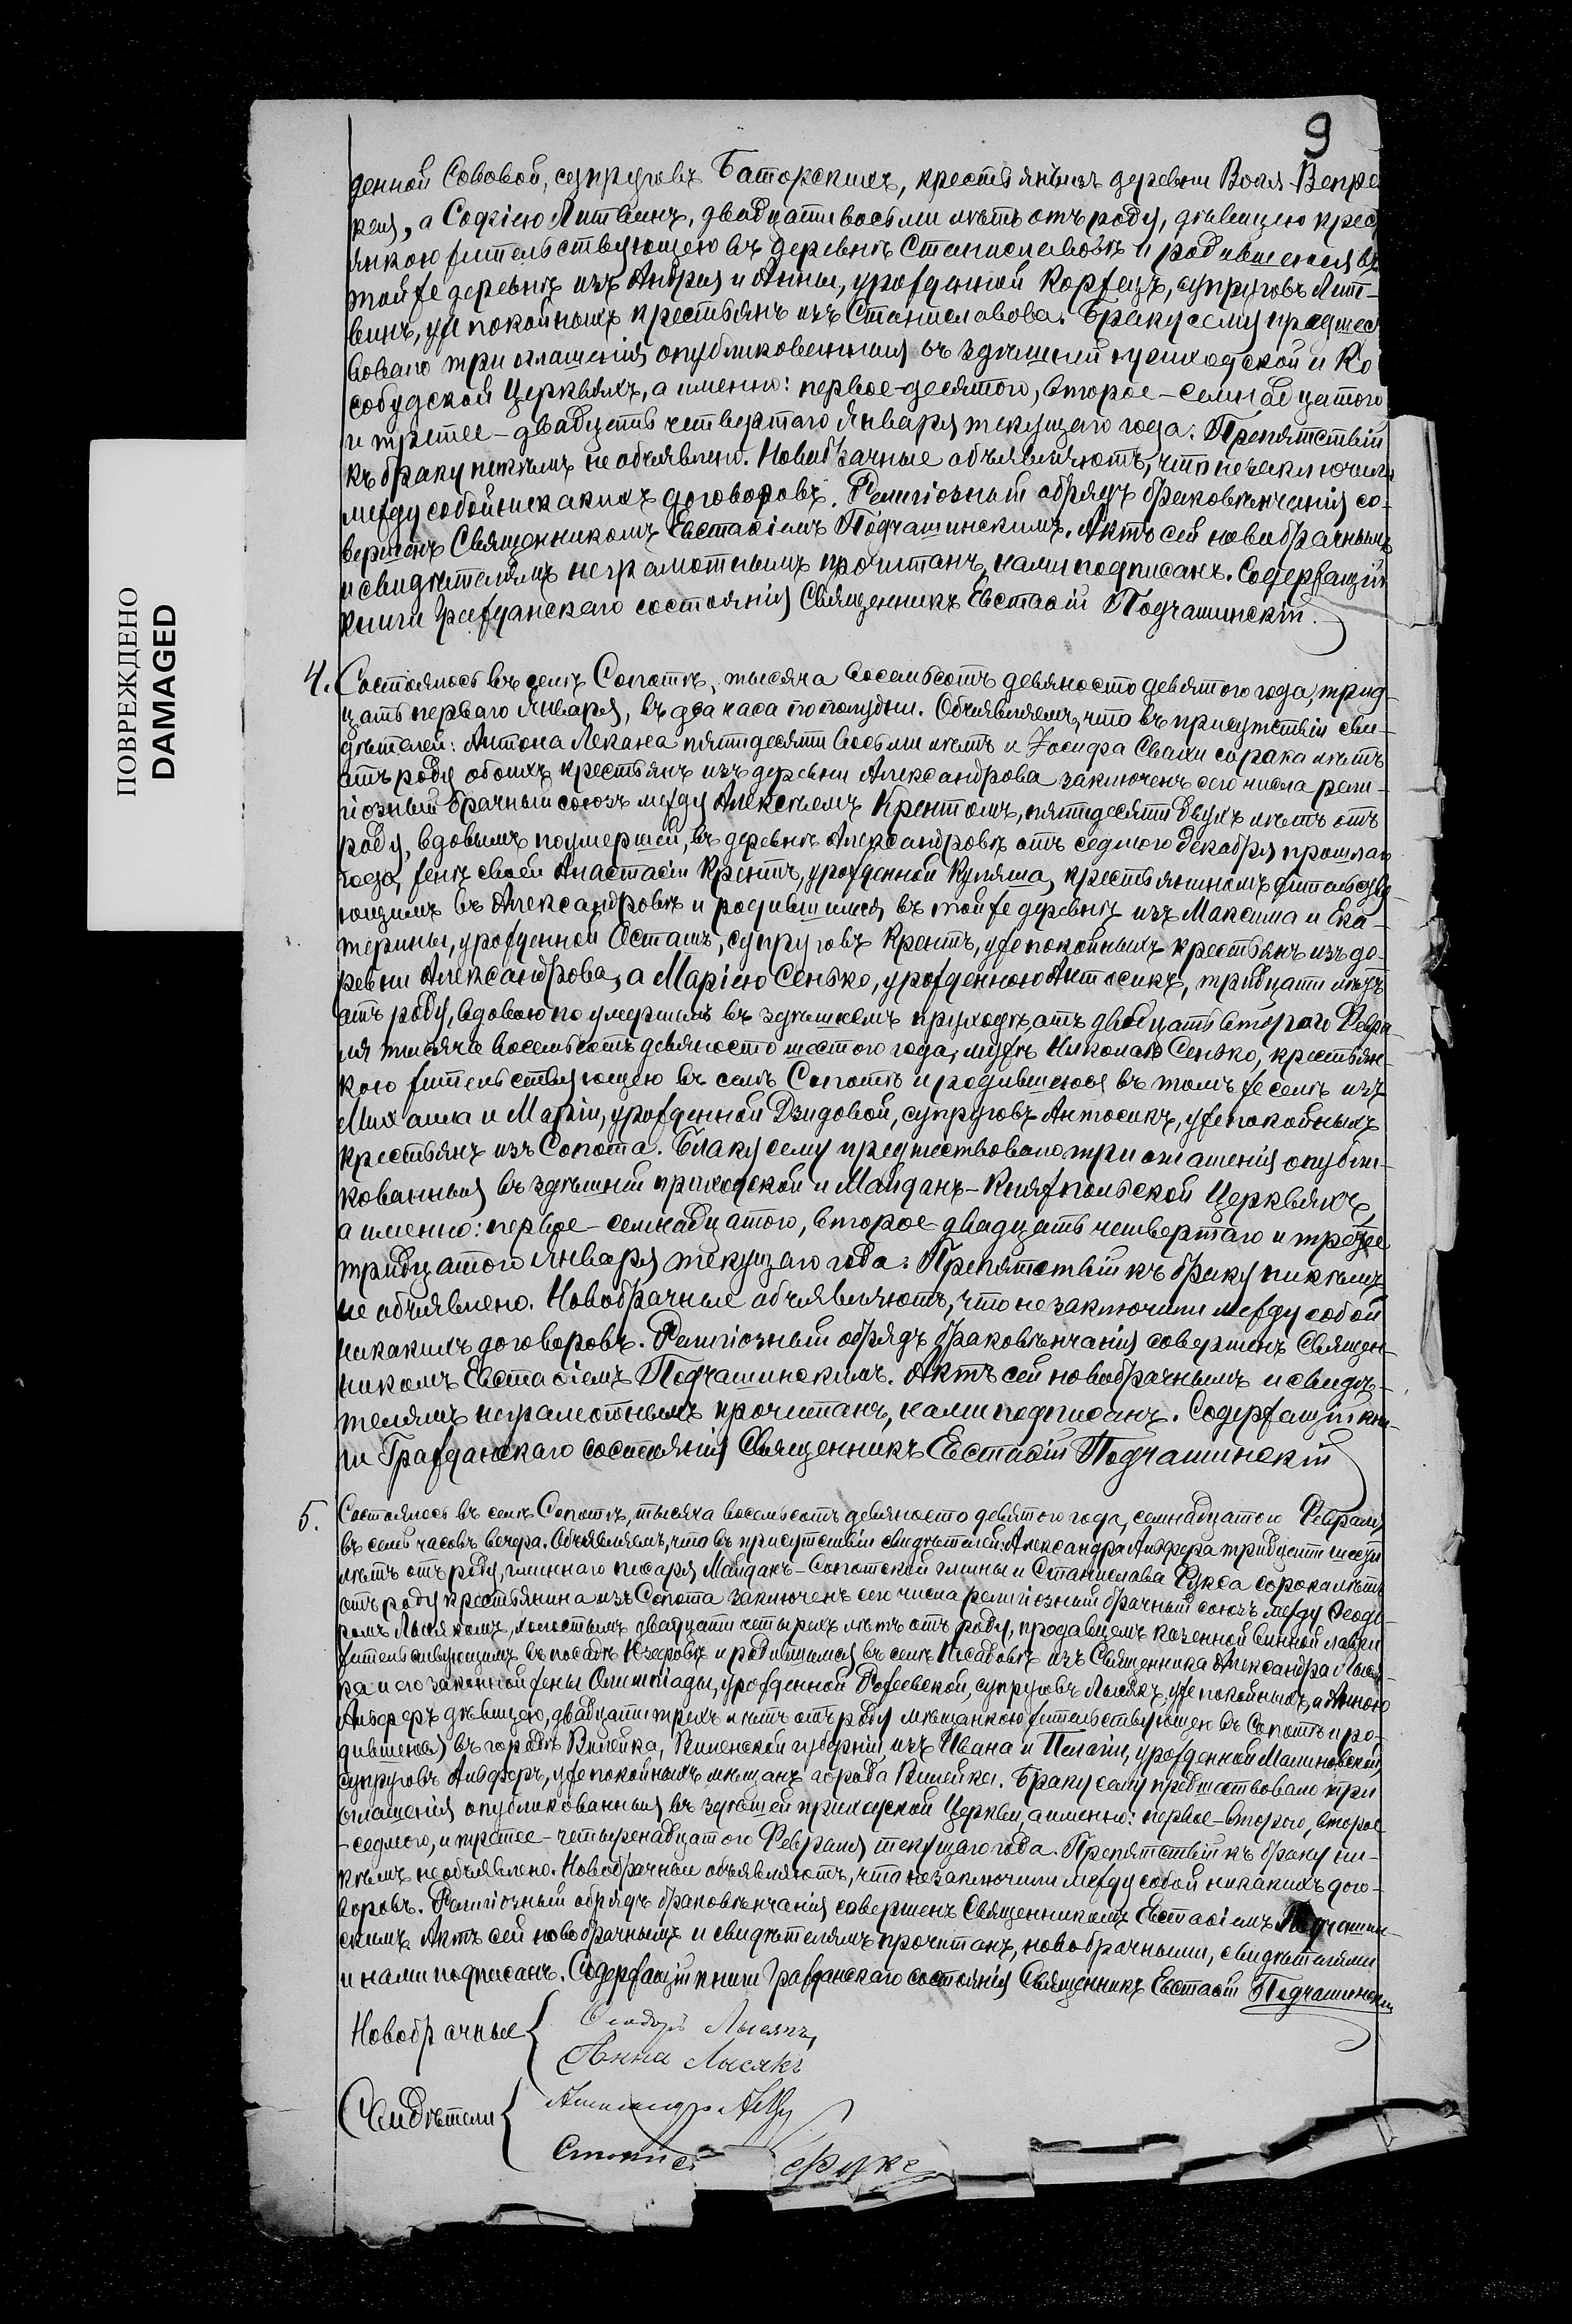 9
денной Сововой, супруговъ Баторскихъ, крестьянъ изъ деревни Воля-Вепре
кая, а Софіею Литвинъ, двадцати восьми лѣтъ отъ роду, дѣвицею крес
янкою жительствующею въ деревнѣ Станиславовѣ и родившеюся въ
той же деревнѣ изъ Андрея и Анны, урожденной Коржецъ, супруговъ Лит-
винъ, уже покойныхъ крестьянъ изъ Станиславова. Браку сему предшес
вовало три оглашенія опубликованныя въ здѣшней приходской и Ко
собудской Церквяхъ, а именно: первое-десятого, второе-семнадцатого
и третее-двадцать четвертаго Января текущаго года. Препятствій
къ браку никѣмъ не объявлено. Новобрачные объявляютъ, что не заключили
между собой никакихъ договоровъ. Религіозный обрядъ браковѣнчанія со-
вершенъ Священникомъ Евстаѳіемъ Подчашинскимъ. Актъ сей новобрачнымъ
и свидѣтелямъ неграмотнымъ прочитанъ, нами подписанъ. Содержащій
книги Гражданскаго состоянія Священникъ Евстаѳій Подчашинскій.
4. Состоялось въ селѣ Сопотѣ, тысяча восемьсотъ девяносто девятого года, трид-
цать перваго Января, въ два часа по полудни. Объявляемъ, что въ присутствіи сви-
дѣтелей: Антона Лекана пятидесяти восьми лѣтъ и Іосифа Свахи сорока лѣтъ
отъ роду обоихъ крестьянъ изъ деревни Александрова заключенъ сего числа рели-
гіозный брачный союзъ между Алексѣемъ Крентомъ, пятидесяти двухъ лѣтъ отъ
роду, вдовымъ по умершей, въ деревнѣ Александровѣ отъ седмого Декабря прошлаго
года, женѣ своей Анастасіи Крентъ, урожденной Купяша, крестьяниномъ жительству
ющимъ въ Александровѣ и родившимся въ той же деревнѣ изъ Максима и Ека-
терины, урожденной Осташъ, супруговъ Крентъ, уже покойныхъ крестьянъ изъ де-
ревни Александрова, а Маріею Сенько, урожденною Антосикъ, тридцати лѣтъ
отъ роду, вдовою по умершемъ въ здѣшнемъ приходѣ, отъ двадцать второго Февра
ля тысяча восемьсотъ девяносто шестого года, мужѣ Николаѣ Сенько, крестьян-
кою жительствующею въ селѣ Сопотѣ и родившеюся въ томъ же селѣ изъ
Михаила и Маріи, урожденной Дзидовой, супруговъ Антосикъ, уже покойныхъ
крестьянъ изъ Сопота. Браку сему предшествовало три оглашенія опубли-
кованныя въ здѣшній приходской и Майданъ-Княжпольской Церквяхъ,
а именно: первое-семнадцатого, второе-двадцать четвертаго и третее
тридцатого Января текущаго года. Препятствій къ браку никѣмъ
не объявлено. Новобрачные объявляютъ, что не заключили между собой
никакихъ договоровъ. Религіозный обрядъ браковѣнчанія совершенъ Священ-
никомъ Евстаѳіемъ Подчашинскимъ. Актъ сей новобрачнымъ и свидѣ-
телямъ неграмотнымъ прочитанъ, нами подписанъ. Содержащій кни-
ги Гражданскаго состоянія Священникъ Евстаѳій Подчашинскій
5. Состоялось въ селѣ Сопотѣ, тысяча восемьсотъ девяносто девятого года, семнадцатого Февраля,
въ семь часовъ вечера. Объявляемъ, что въ присутствіи свидѣтелей: Александра Альфера тридцати шести
лѣтъ отъ роду, гминнаго писаря Майданъ-Сопотской гмины и Станислава Фукса сорока лѣтъ
отъ роду крестьянина изъ Сопота заключенъ сего числа религіозный брачный союзъ между Ѳеодо-
ромъ Лысякомъ, холостымъ двадцати четырехъ лѣтъ отъ роду, продавцемъ казенной винной лавки
жительствующимъ въ посадѣ Юзефовѣ и родившимся въ селѣ Посадовѣ изъ Священника Александра Лыся-
ка и его законной жены Олимпіады, урожденной Рафеевской, супруговъ Лысякъ, уже покойныхъ, а Анною
Альферъ дѣвицею, двадцати трехъ лѣтъ отъ роду мѣщанкою жительствующею въ Сопотѣ и ро-
дившеюся въ городѣ Вилейка, Виленской губерніи изъ Ивана и Пелагіи, урожденной Малиновской,
супруговъ Альферъ, уже покойныхъ мѣщанъ города Вилейка. Браку сему предшествовало три
оглашенія опубликованныя въ здѣшней приходской Церкви, а именно: первое-второго, второе
-седмого, и третее-четырнадцатого Февраля текущаго года. Препятствій къ браку ни-
кѣмъ необъявлено. Новобрачные объявляютъ, что не заключили между собой никакихъ дого-
воровъ. Религіозный обрядъ браковѣнчанія совершенъ Священникомъ Евстаѳіемъ Подчашин-
скимъ. Актъ сей новобрачнымъ и свидѣтелямъ прочитанъ, новобрачными, свидѣтелями
и нами подписанъ. Содержащій книги Гражданскаго состоянія Священникъ Евстаѳій Подчашинскій
Новобрачные { Ѳеодоръ Лысякъ,
Анна Лысякъ
Свидѣтели { Александръ
Фуксъ
ПОВРЕЖДЕНО
DAMAGED